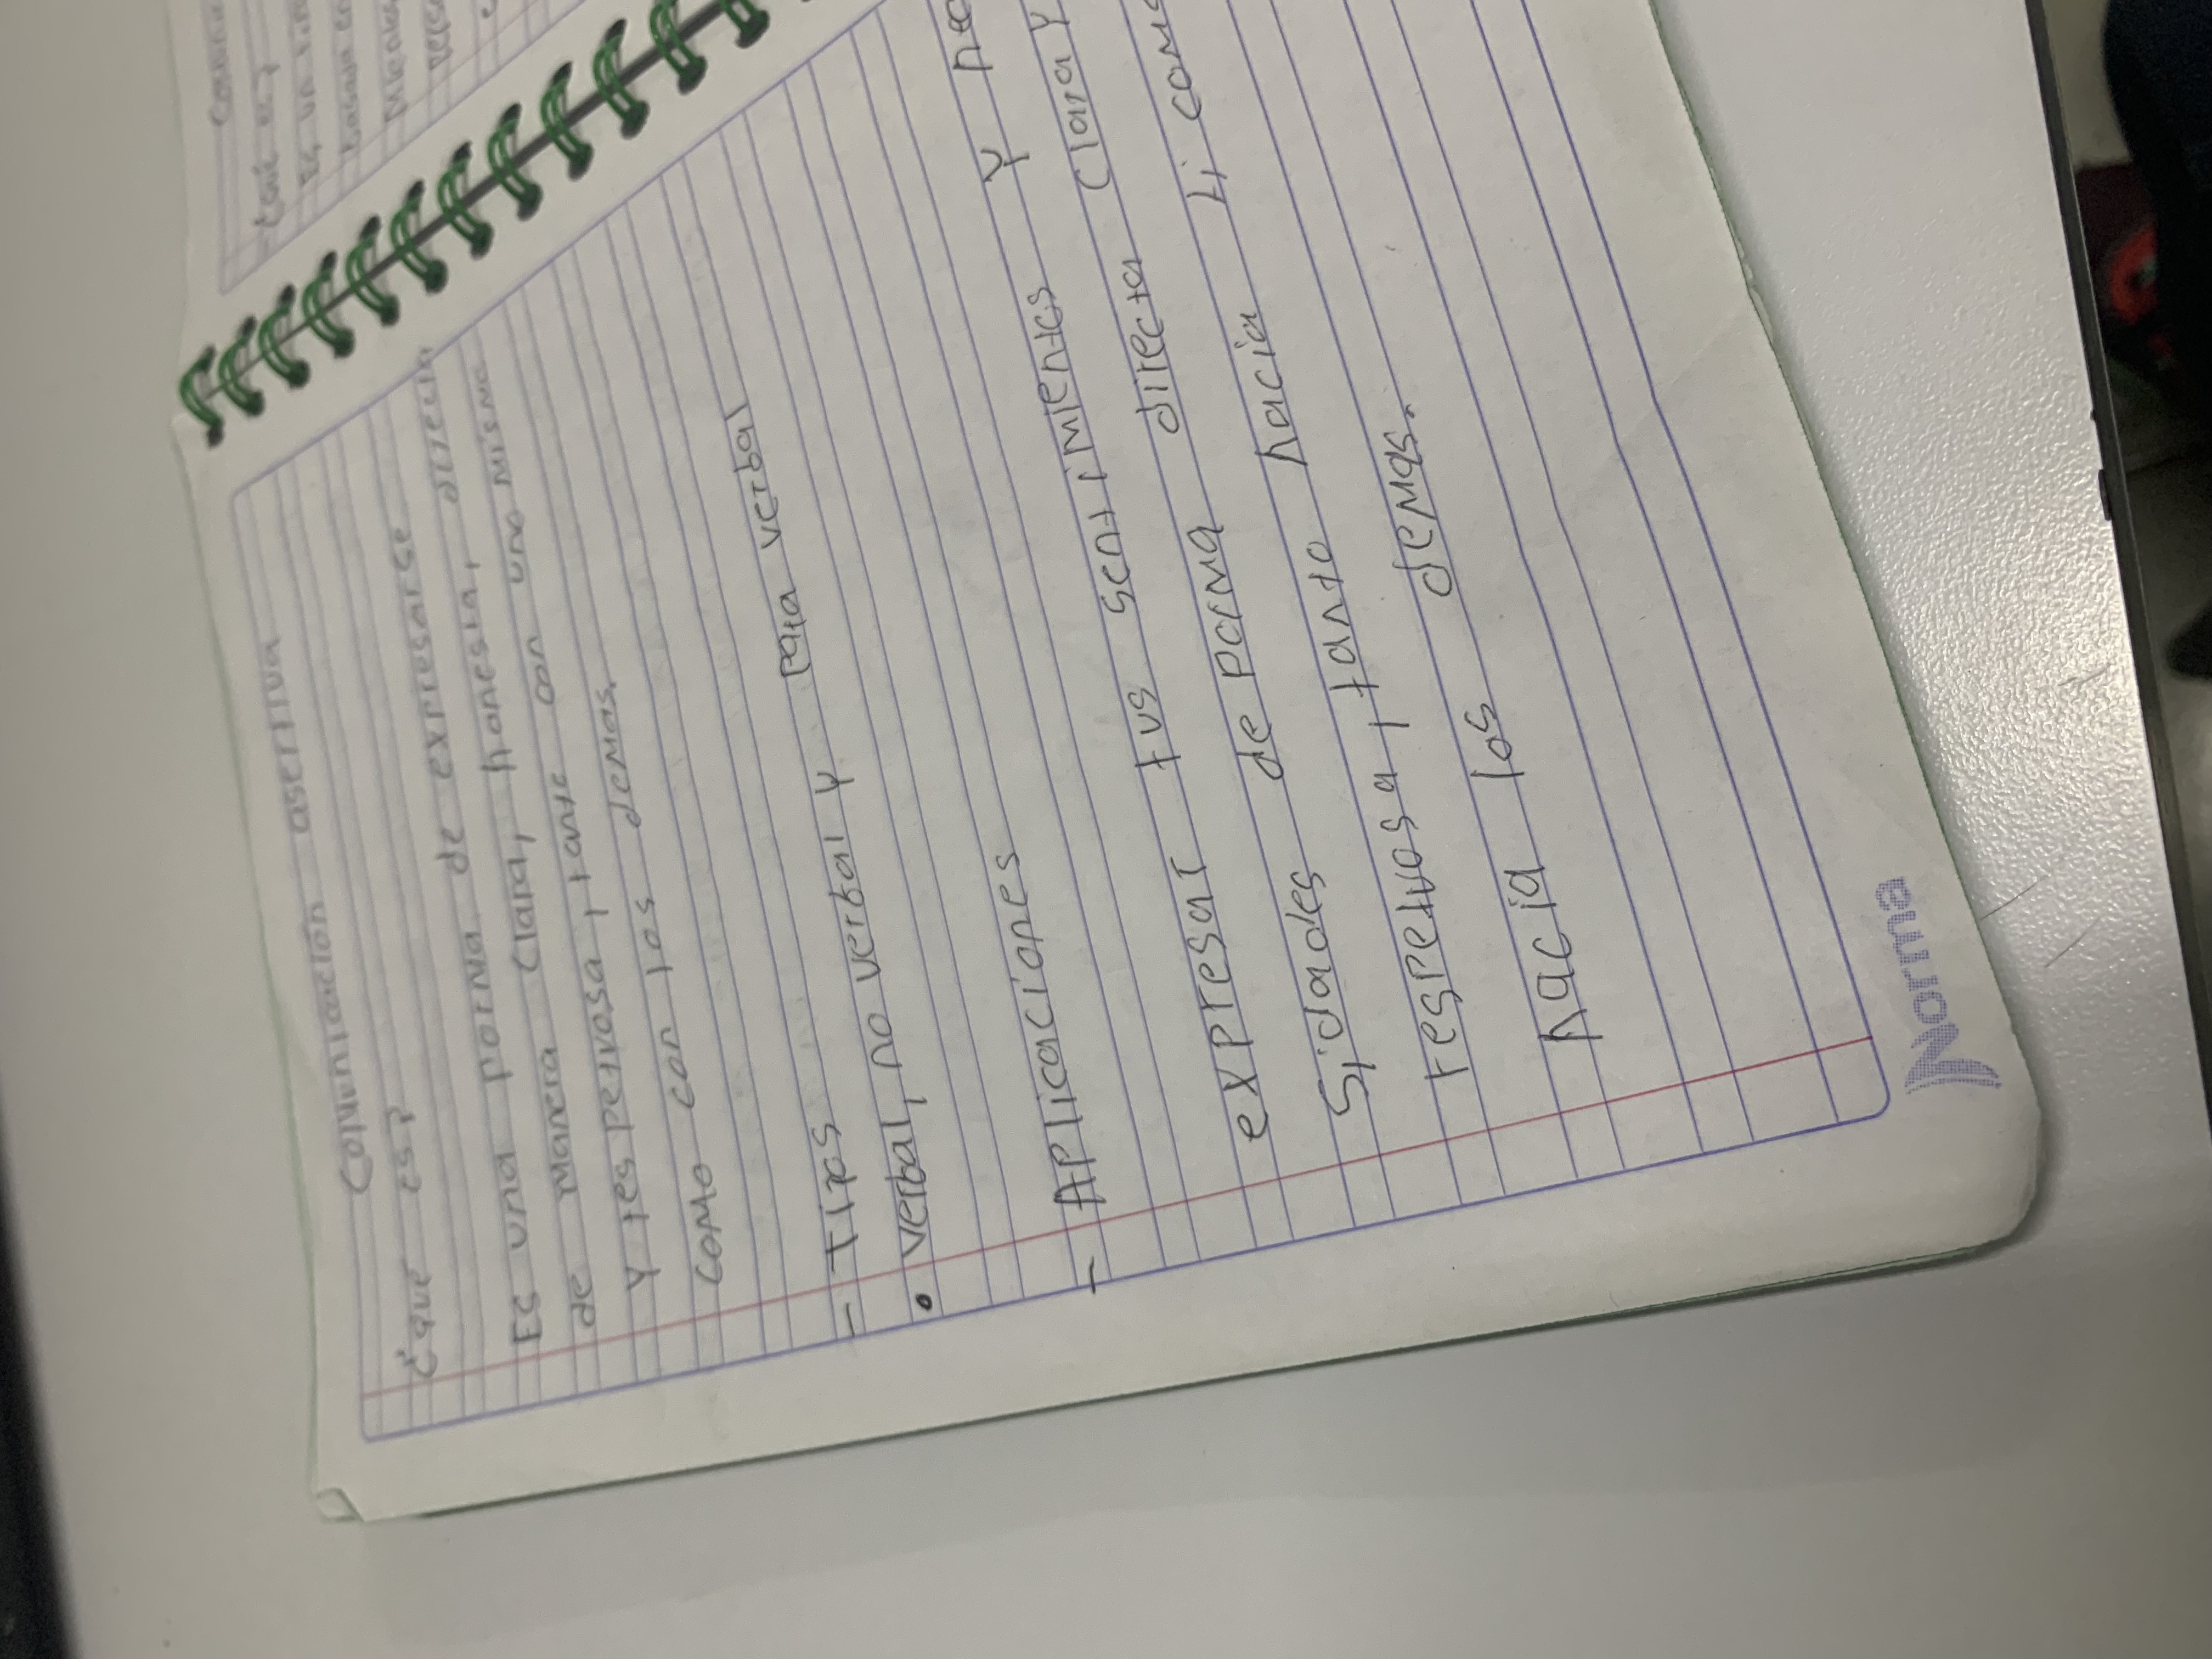 Comunicación asertiva
¿que es?
Es una porma de expresarse
de manera clara, honesta, directa
y respetuosa, tanto con uno mismo
como con los demas.
- Tipos
• verbal, no verbal y para verbal
- Aplicaciones
expresar tus sentimientos y nec
sidades de porma directa clara y
respetuosa, tanto hacia ti como
hacia los demas.
Norma
-¿Qué es?
Es un